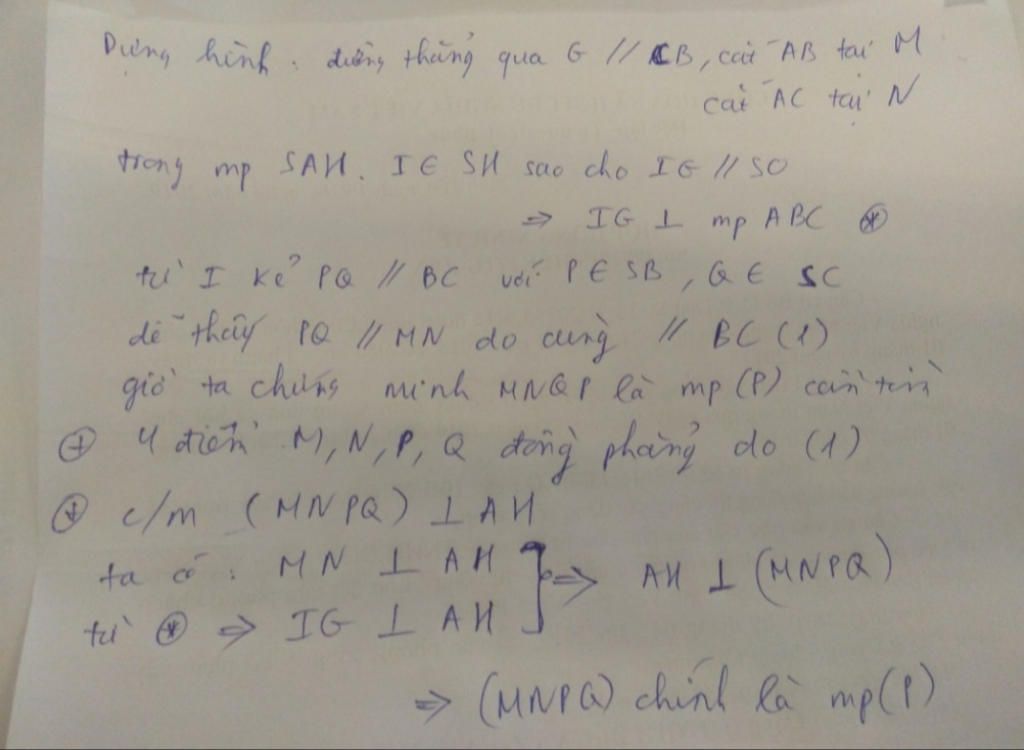 Dựng hình : đường thẳng qua G // CB, cắt AB tại M
cắt AC tại N
trong mp SAH. I ∈ SH sao cho IG // SO
⇒ IG ⊥ mp ABC ⊛
từ I kẻ PQ // BC với P ∈ SB, Q ∈ SC
dễ thấy PQ // MN do cùng // BC (1)
giờ ta chứng minh MNQP là mp (P) cần tìm
⊕ 4 điểm M, N, P, Q đồng phẳng do (1)
⊕ c/m (MNPQ) ⊥ AH
ta có : MN ⊥ AH ] ⇒ AH ⊥ (MNPQ)
từ ⊛ ⇒ IG ⊥ AH
⇒ (MNPQ) chính là mp(P)